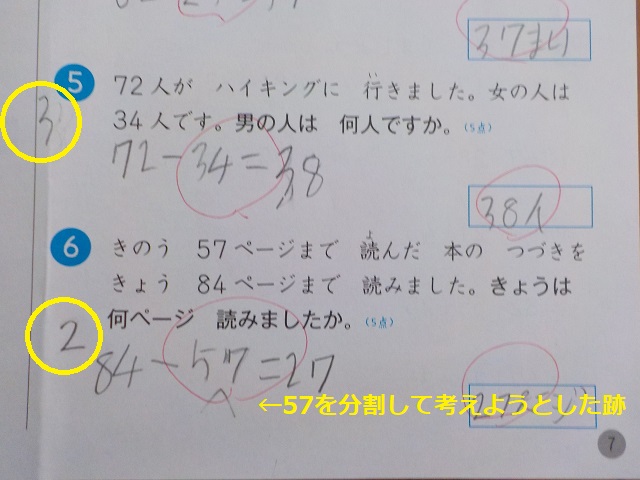 37まり
5
72人が ハイキングに 行きました。女の人は
い
3
34人です。男の人は 何人ですか。(5点)
72-34=38
38人
6
きのう 57ページまで 読んだ 本の つづきを
よ
きょう 84ページまで 読みました。きょうは
2
何ページ 読みましたか。(5点)
84-57=27
←57を分割して考えようとした跡
27ページ
7